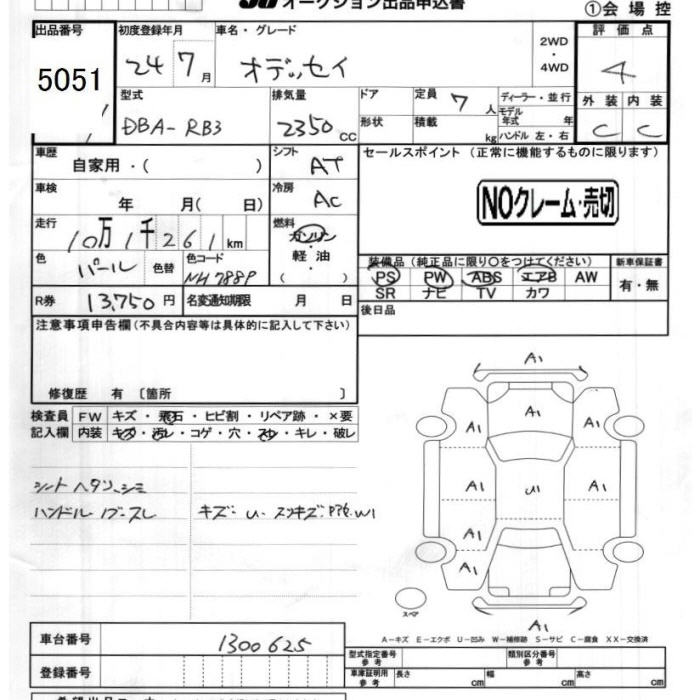 オークション出品申込書
①会場控
出品番号 初度登録年月 車名・グレード 2WD・4WD 評価点
5051 24 7月 オデッセイ 4
型式 排気量 ドア 定員 7人 ディーラー・並行 外装 内装
DBA-RB3 2350cc 形状 積載 kg モデル年式 年 ハンドル 左・右 C C
車歴 自家用・( ) シフト AT セールスポイント (正常に機能するものに限ります)
車検 年 月( 日) 冷房 AC
NOクレーム・売切
走行 10万1千261km 燃料 ガソリン・軽油・( )
色 パール 色替 色コード NH788P
装備品 (純正品に限り〇をつけてください) 新車保証書
PS PW ABS エアB AW 有・無
SR ナビ TV カワ
R券 13,750円 名変通知期限 月 日 後日品
注意事項申告欄(不具合内容等は具体的に記入して下さい)
修復歴 有 〔箇所 〕
検査員 FW キズ・飛石・ヒビ割・リペア跡・×要
記入欄 内装 キズ・汚レ・コゲ・穴・スレ・キレ・破レ
シートヘタリ、シミ
ハンドル
キズ:U・スリキズ:
A1
A1
A1 A1
A1 U1 A1
A1 A1
A1
スペア
A1
A-キズ E-エクボ U-凹み W-補修跡 S-サビ C-腐食 XX-交換済
車台番号 1300625
登録番号
型式指定番号 参考 類別区分番号 参考
車庫証明用 参考 長さ cm 幅 cm 高さ cm